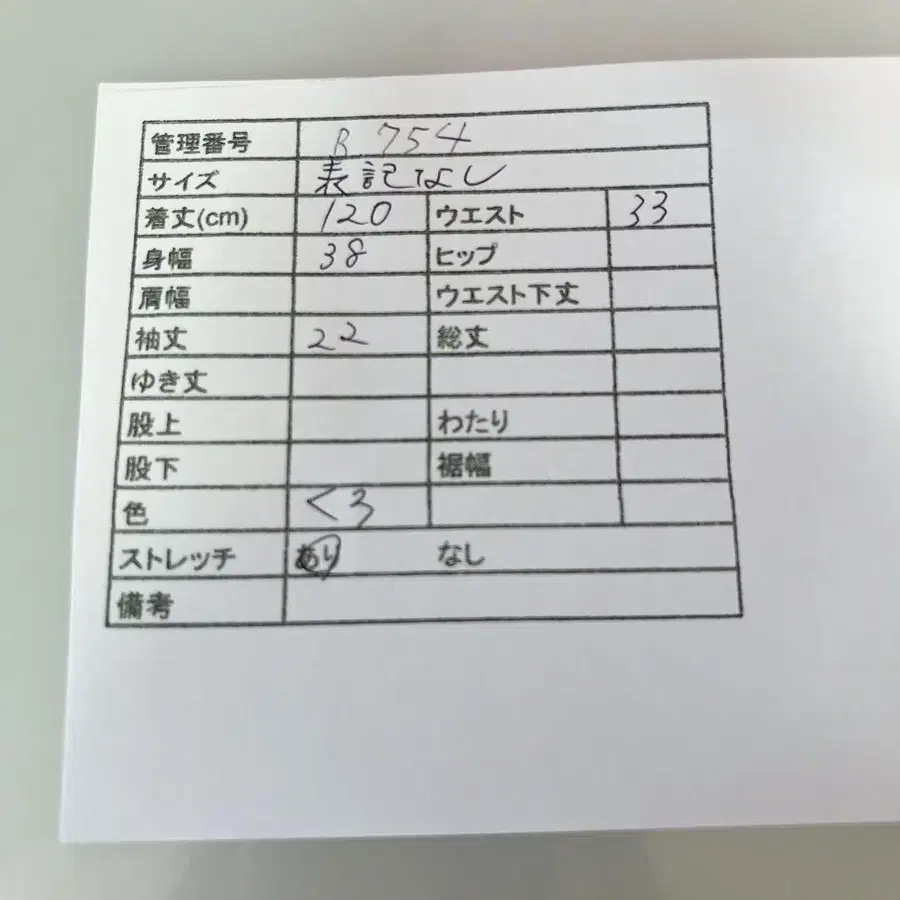 管理番号 B 754
サイズ 表記なし
着丈(cm) 120 ウエスト 33
身幅 38 ヒップ
肩幅 ウエスト下丈
袖丈 22 総丈
ゆき丈
股上 わたり
股下 裾幅
色 くろ
ストレッチ あり なし
備考